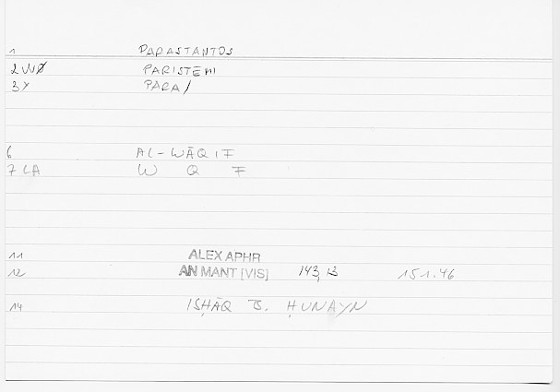 1 PARASTANTOS
2 VVØ PARISTEMI
3 Y PARA/
6 AL-WĀQIF
7 LA W Q F
11 ALEX APHR
12 AN MANT [VIS] 143, 13 151.46
14 ISḤĀQ B. ḤUNAYN